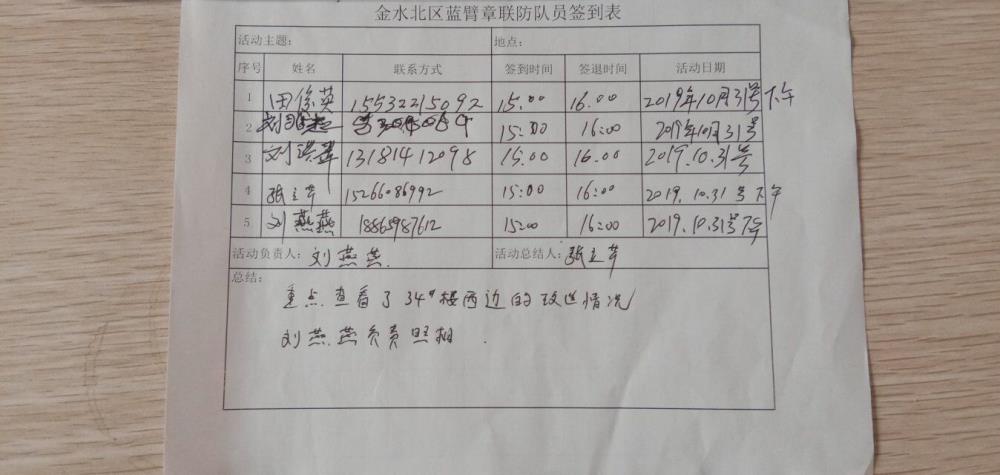 金水北区蓝臂章联防队员签到表
活动主题： 地点：
序号 姓名 联系方式 签到时间 签退时间 活动日期
1 田俊英 15532215092 15.00 16.00 2019年10月31号下午
2 刘 15:00 16:00 2019年10月31号
3 刘洪翠 13181412098 15.00 16.00 2019.10.31号
4 张立芹 15266086992 15:00 16:00 2019.10.31号下午
5 刘燕燕 18865987612 15:00 16:00 2019.10.31号下午
活动负责人：刘燕燕. 活动总结人：张立芹
总结：
重点查看了34#楼两边的改造情况
刘燕燕负责照相.